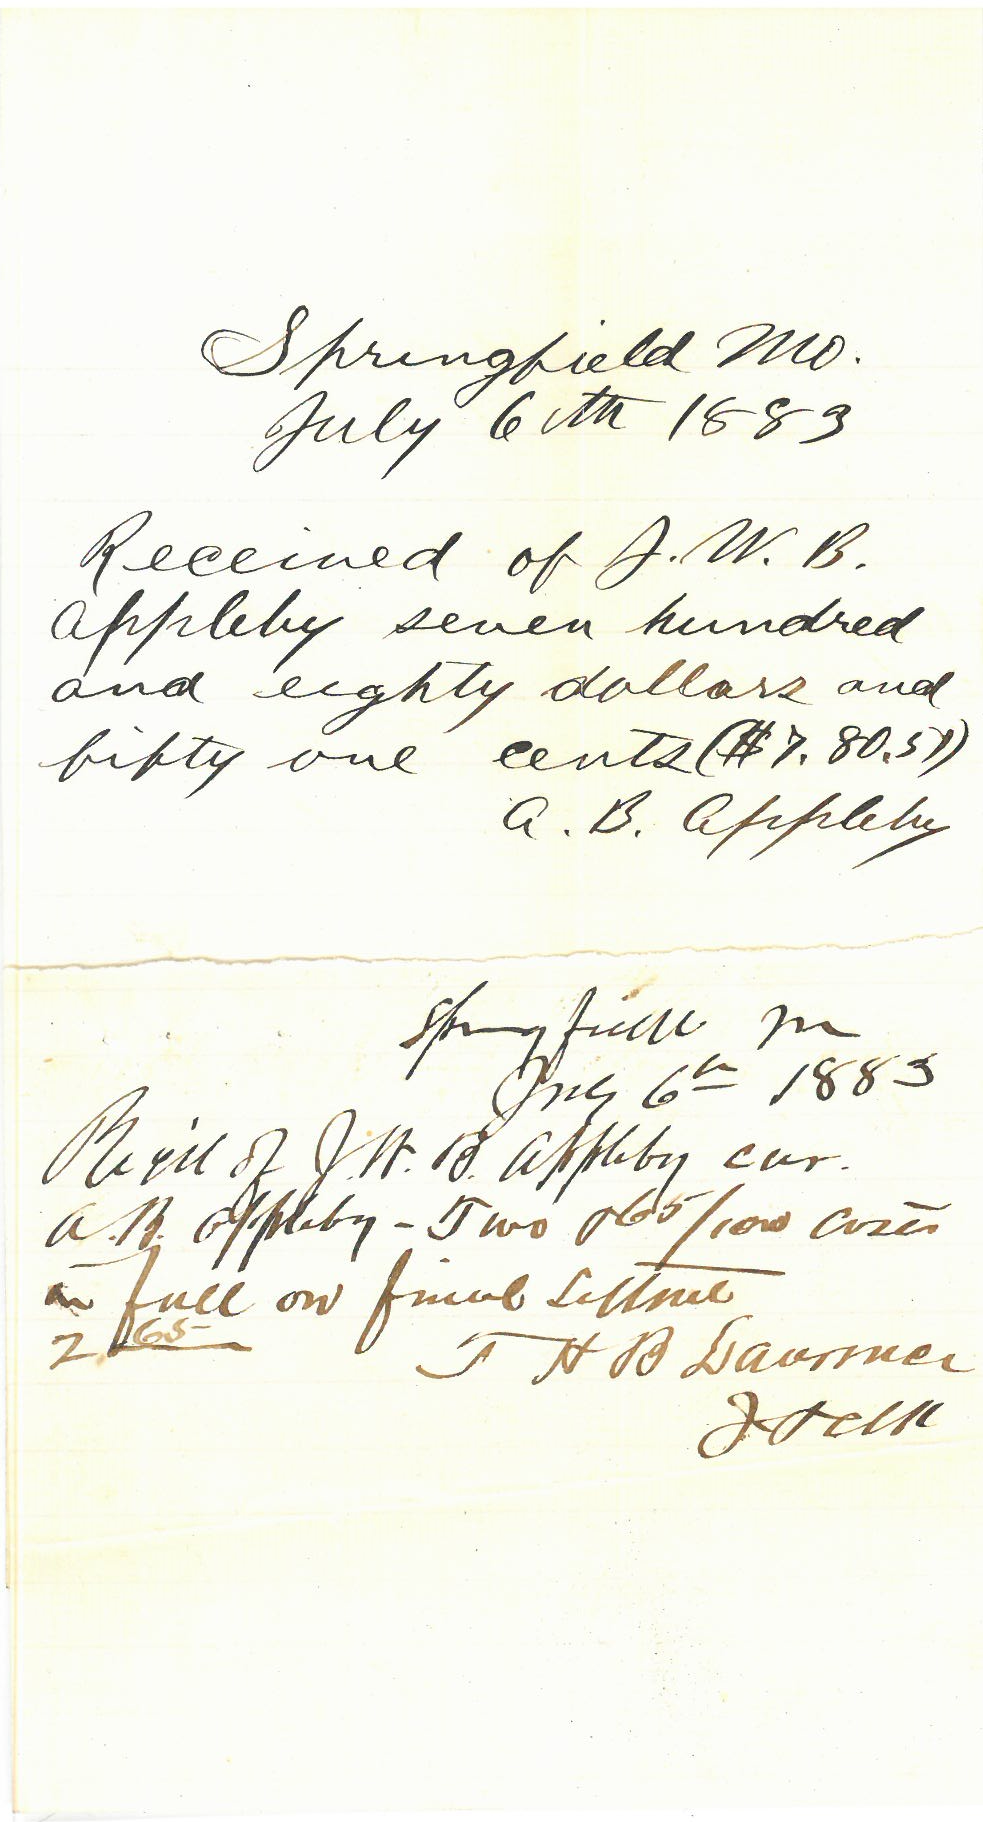 Springfield Mo.
July 6th 1883
Received of J. W. B.
Appleby seven hundred
and eighty dollars and
fifty one cents ($7.80.51)
A. B. Appleby
Springfield Mo
July 6th 1883
Recd of J. W. B. Appleby cur.
A. B. Appleby - Two & 65/100 costs
in full on final Settmt
2 65
T H B Lawrence